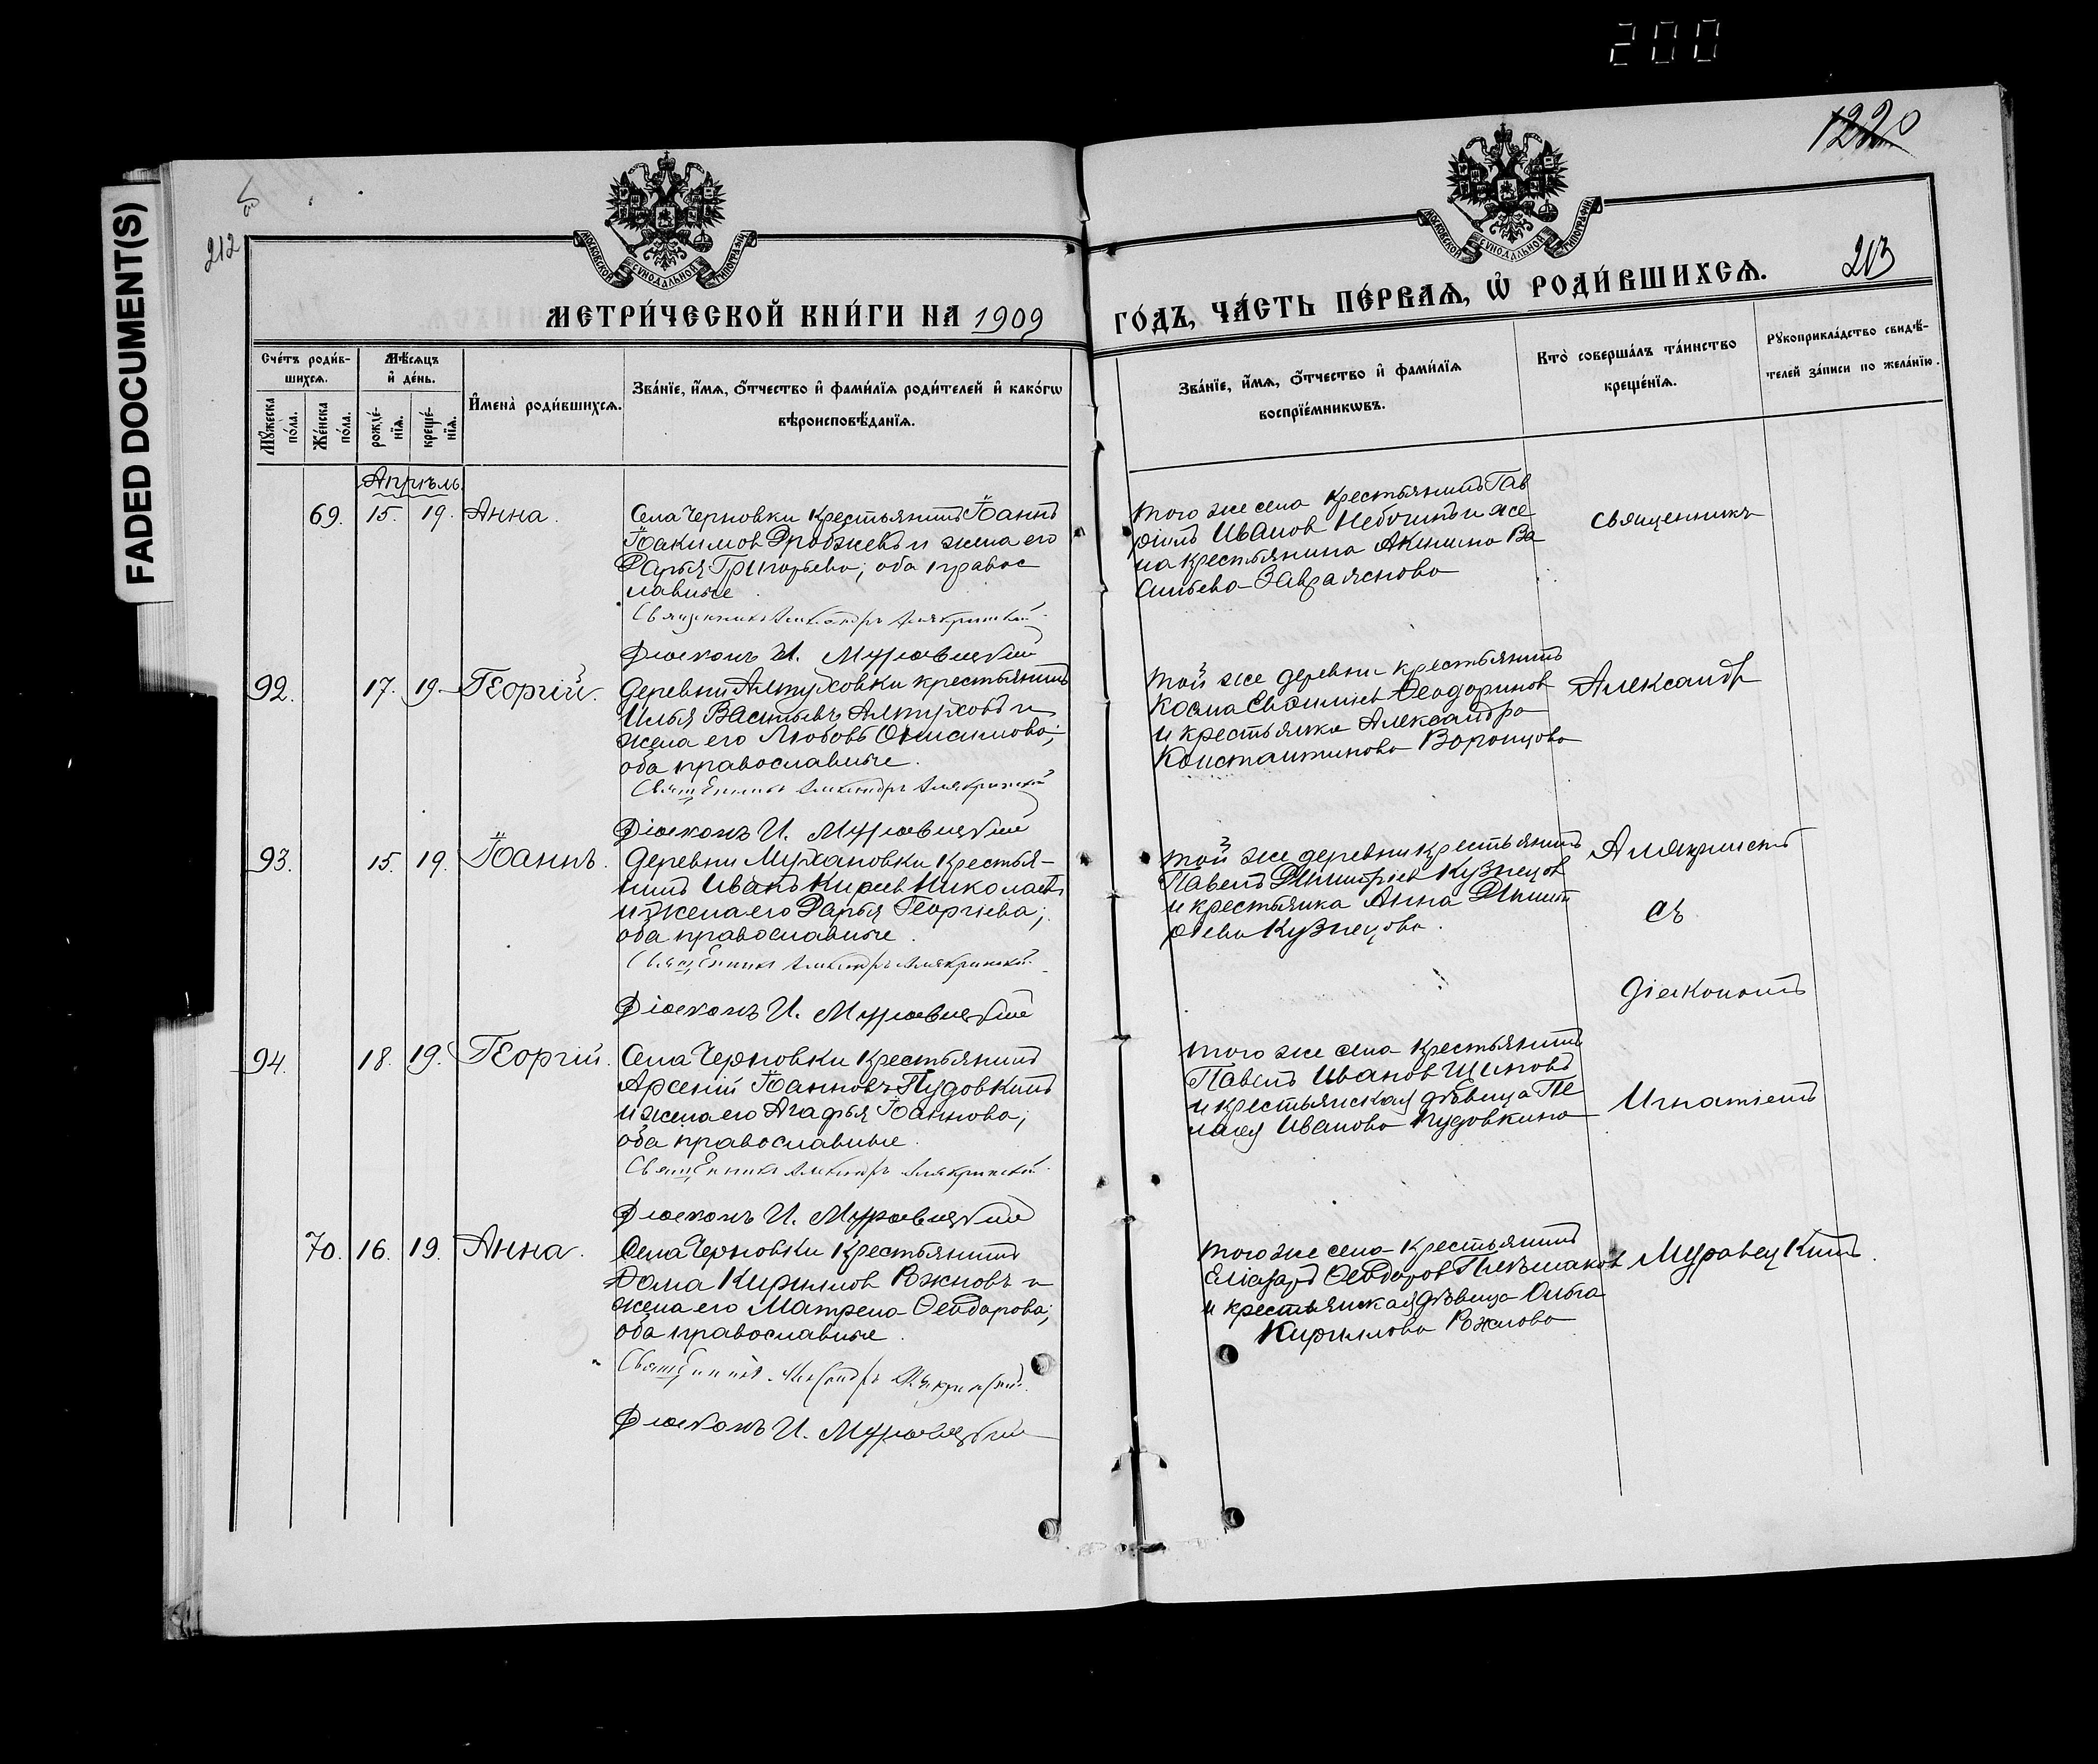 200
FADED DOCUMENT(S)
1220
212
213
МОСКОВСКОЙ СѴНОДАЛЬНОЙ ТИПОГРАФІИ
МОСКОВСКОЙ СѴНОДАЛЬНОЙ ТИПОГРАФІИ
МЕТРИ́ЧЕСКОЙ КНИ́ГИ НА 1909
ГО́ДЪ, ЧА́СТЬ ПЕ́РВАѦ, Ѡ҆ РОДИ́ВШИХСѦ.
Сче́тъ роди́в-
шихсѧ.
Мѣ́сѧцъ
и҆ де́нь.
Мꙋ́жеска
по́ла.
Же́нска
по́ла.
рожде́-
нїѧ.
креще́-
нїѧ.
И҆мена̀ роди́вшихсѧ.
Зва́нїе, и҆́мѧ, ѻ҆́тчество и҆ фами́лїѧ роди́телей и҆ како́гѡ
вѣроисповѣ́данїѧ.
Зва́нїе, и҆́мѧ, ѻ҆́тчество и҆ фами́лїѧ
воспрїе́мникѡвъ.
Кто̀ соверша́лъ та́инство
креще́нїѧ.
Рꙋкоприкла́дство свидѣ́-
телей за́писи по жела́нїю.
Апрѣль
69. 15. 19. Анна.
Села Черновки крестьянинъ Іоаннъ
Іоакимов Дробжевъ и жена его
Дарья Григорьева; оба правос
лавные
Священникъ Александръ Алякринскій
Діаконъ И. Муравецкій
того же села крестьянинъ Гав
ріилъ Иванов Небогинъ и же
на крестьянина Акинина Ва
сильева
Священникъ
92. 17. 19. Георгій.
Деревни Алтуховки крестьянинъ
Илья Васильевъ Алтуховъ и
жена его Любовь Онисимова;
оба православные.
Священникъ Александръ Алякринскій
Діаконъ И. Муравецкій
той же деревни крестьянинъ
Косма Евфиміев Феодоринов
и крестьянка Александра
Константинова Воронцова
Александръ
93. 15. 19. Іоаннъ.
Деревни Мухановки крестья-
нинъ Иванъ Кирѣев Николаевъ
и жена его Дарья Георгіева;
оба православные.
Священникъ Александръ Алякринскій
Діаконъ И. Муравецкій
той же деревни крестьянинъ
Павелъ Димитріев Кузнецов
и крестьянка Анна Димит
ріева Кузнецова.
Алякринскій
съ
діакономъ
94. 18. 19. Георгій.
Села Черновки крестьянинъ
Арсеній Іоанновъ Пудовкинъ
и жена его Агафья Іоаннова;
оба православные.
Священникъ Александръ Алякринскій
Діаконъ И. Муравецкій
того же села крестьянинъ
Павелъ Иванов Шиповъ
и крестьянская дѣвица Пе
лагея Иванова Пудовкина
Игнатіемъ
70. 16. 19. Анна.
Села Черновки крестьянинъ
Фома Кириллов и
жена его Матрена Феодорова;
оба православные.
Священникъ Александръ Алякринскій
Діаконъ И. Муравецкій
того же села крестьянинъ
Еліазаръ Феодоров Плѣшаков
и крестьянская дѣвица Ольга
Кириллова
Муравецкимъ.